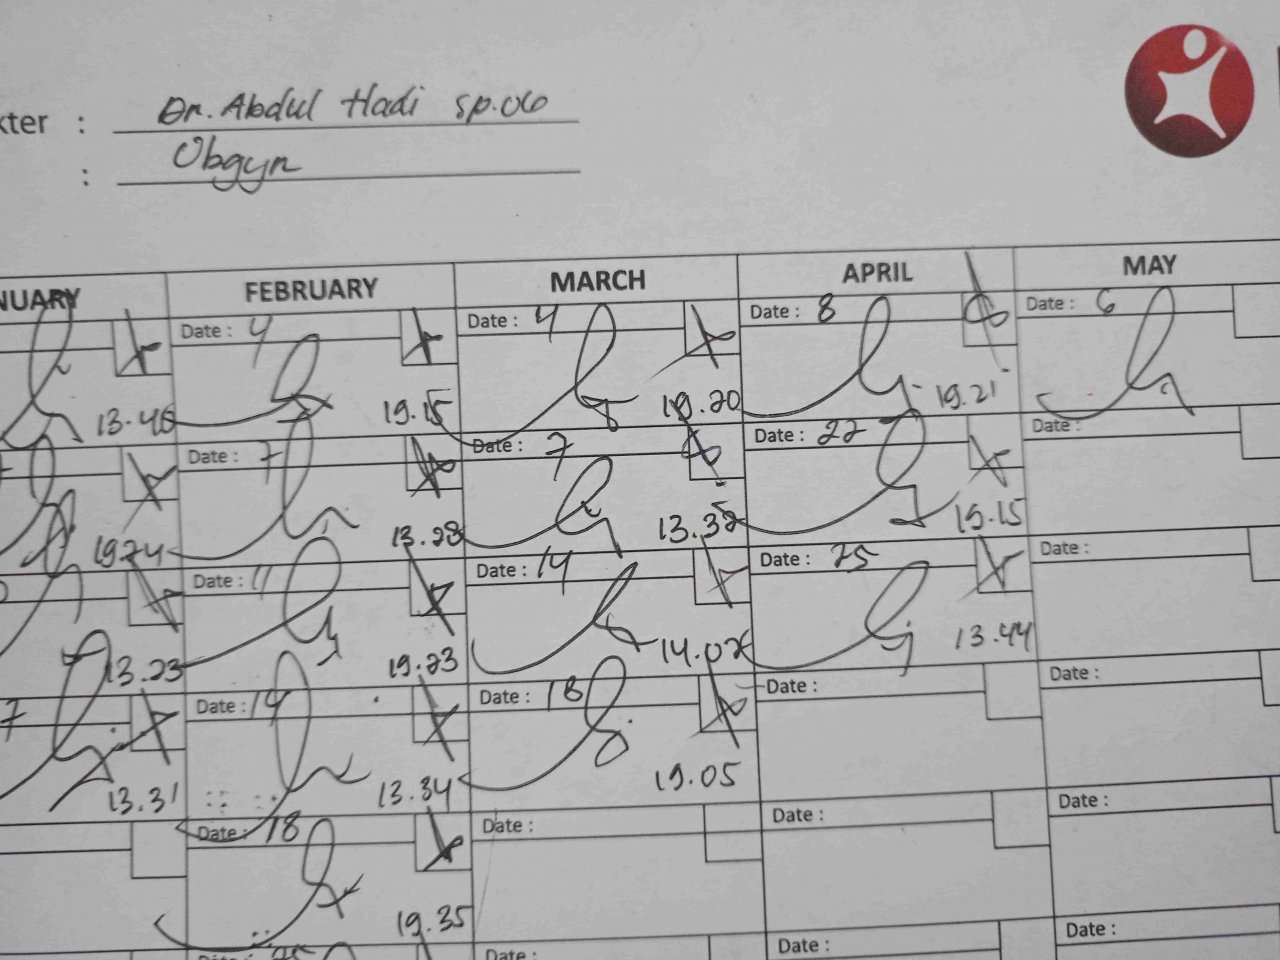 kter : Dr. Abdul Hadi sp.OG
: Obgyn
NUARY FEBRUARY MARCH APRIL MAY
Date : 4 Date : 4 Date : 8 Date : 6
13.46 19.15 19.20 19.21
Date : 7 Date : 7 Date : 22 Date :
19.24 13.28 13.38 19.15
Date : 11 Date : 14 Date : 25 Date :
13.23 19.23 14.02 13.44
7 Date : 14 Date : 18 Date : Date :
13.31 13.34 19.05
Date : 18 Date : Date : Date :
19.35
Date : 25 Date : Date : Date :